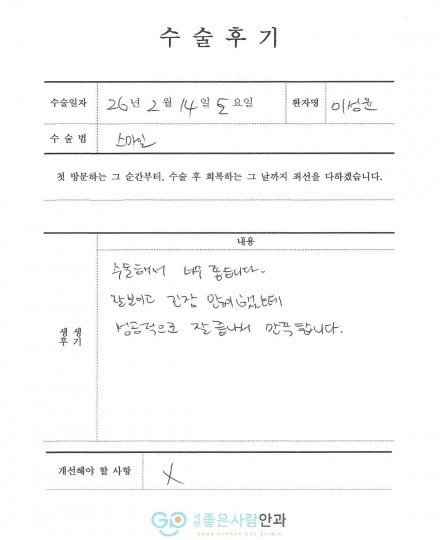 수술후기
수술일자 26년 2월 14일 토요일 환자명 이성윤
수 술 법 스마일
첫 방문하는 그 순간부터, 수술 후 회복하는 그 날까지 최선을 다하겠습니다.
내용
생생후기
수술해서 너무 좋습니다.
잘보이고 긴장 안해했는데
성공적으로 잘 끝나서 만족합니다.
개선해야 할 사항 X
GOO 서울 좋은사람안과
GOOD PERSON EYE CLINIC